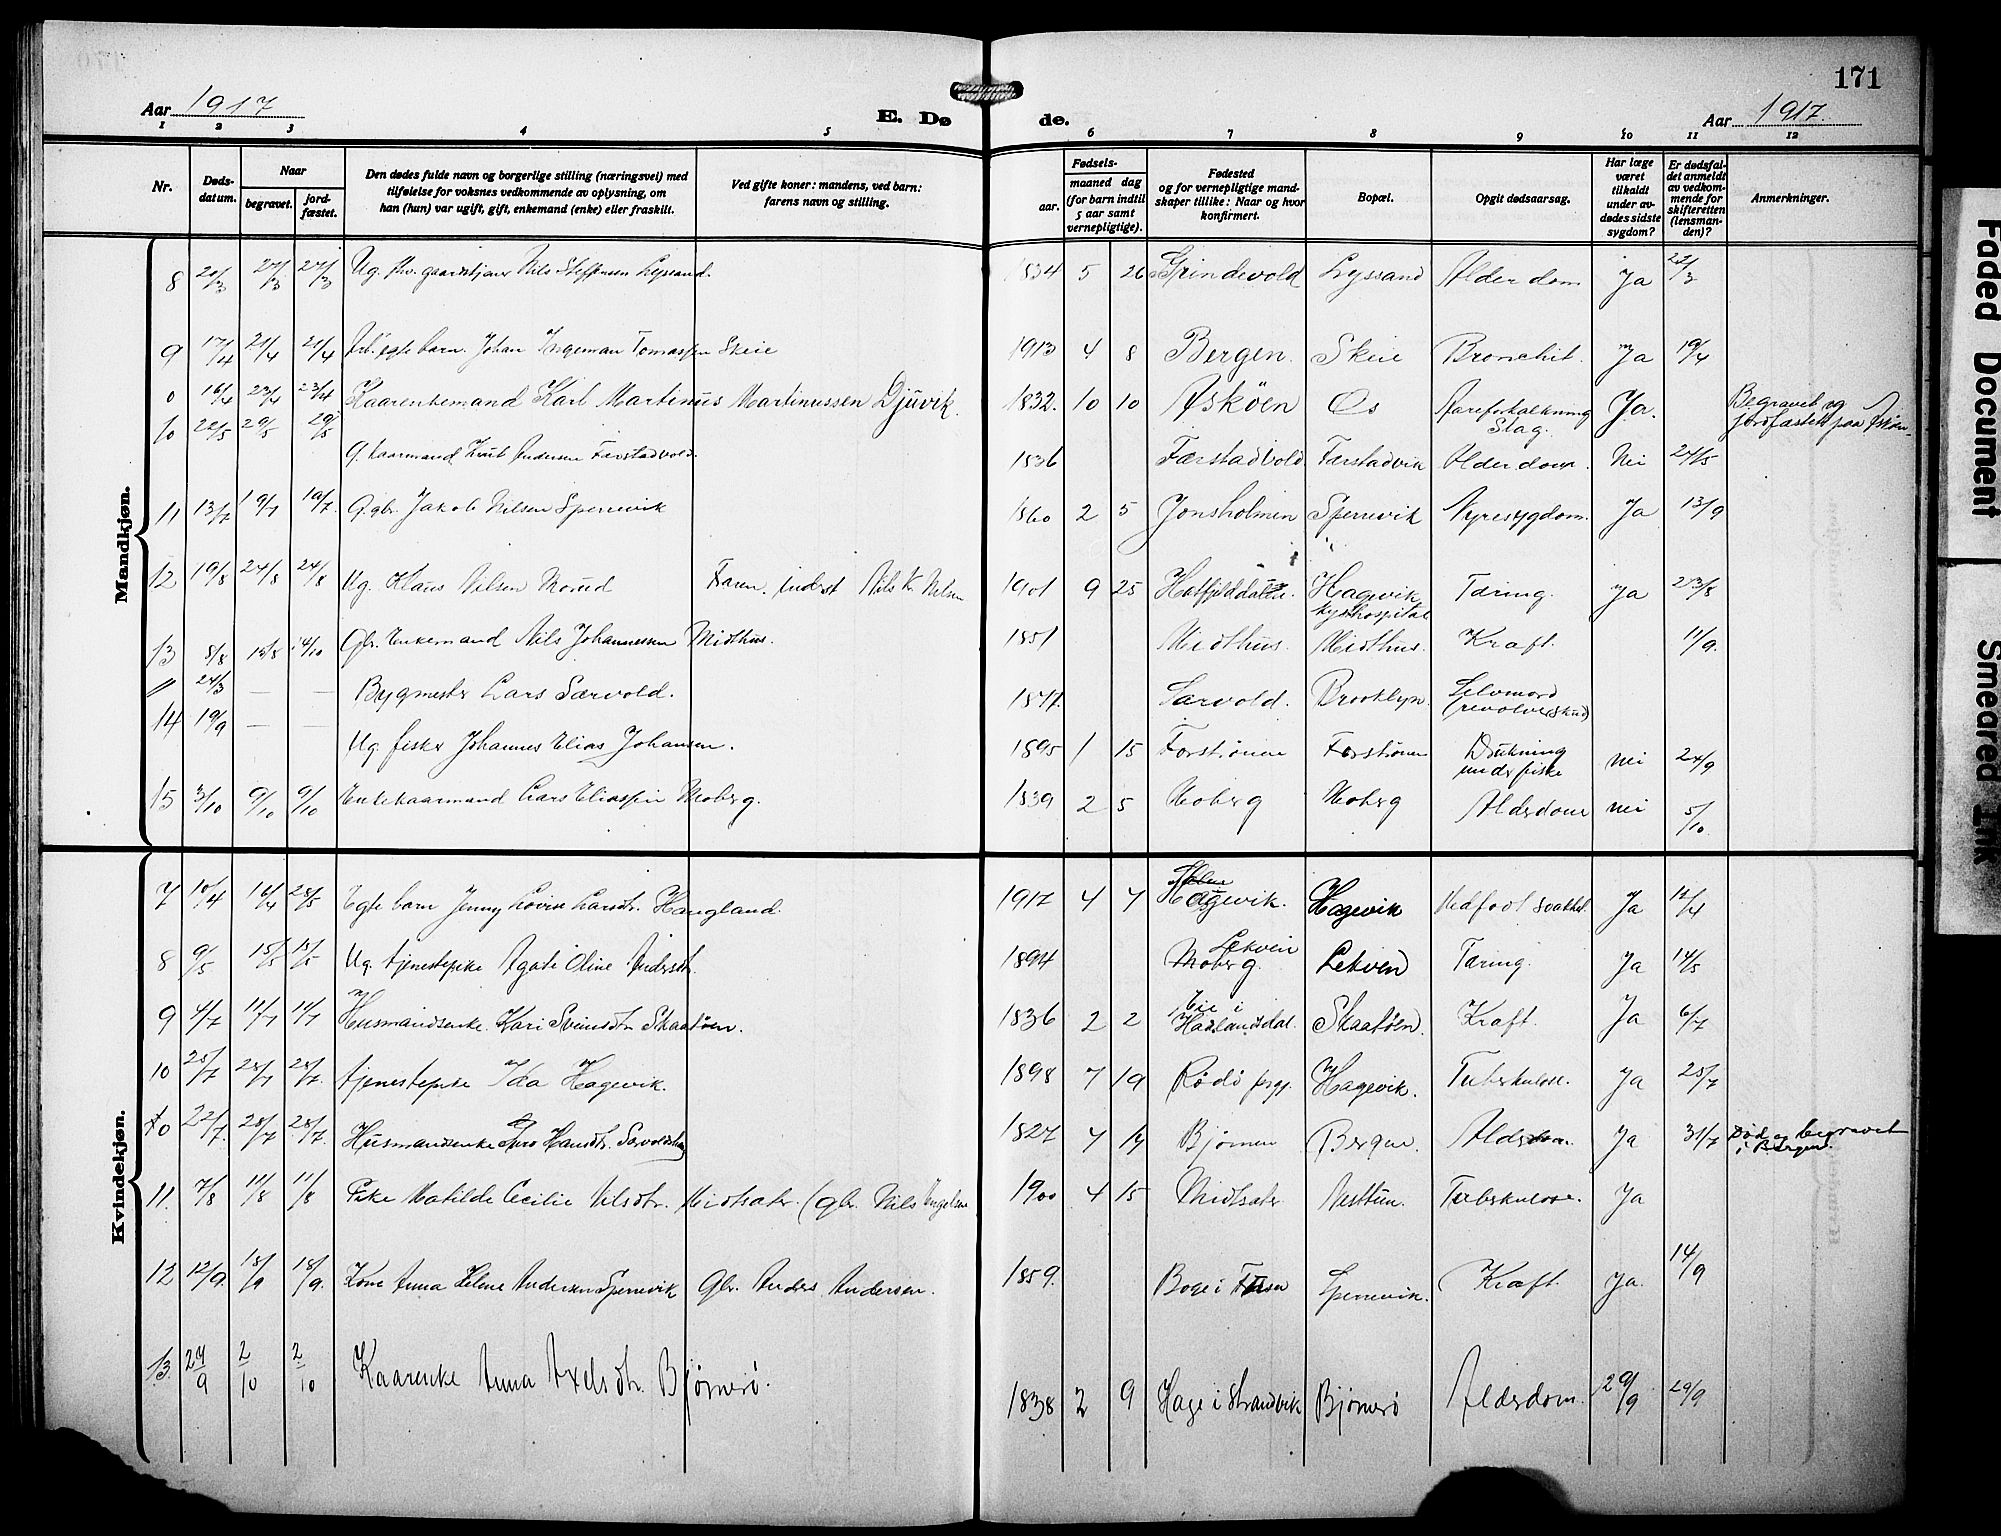 171
Aar 1917
E. Døde.
Aar 1917.
1 2 3 4 5 6 7 8 9 10 11 12
Nr.
Døds-
datum.
Naar
begravet.
jord-
fæstet.
Den dødes fulde navn og borgerlige stilling (næringsvei) med
tilføielse for voksnes vedkommende av oplysning, om
han (hun) var ugift, gift, enkemand (enke) eller fraskilt.
Ved gifte koner: mandens, ved barn:
farens navn og stilling.
Fødsels-
aar.
maaned dag
(for barn indtil
5 aar samt
vernepligtige).
Fødested
og for vernepligtige mand-
skaper tillike: Naar og hvor
konfirmert.
Bopæl.
Opgit dødsaarsag.
Har læge
været
tilkaldt
under av-
dødes sidste
sygdom?
Er dødsfal-
det anmeldt
av vedkom-
mende for
skifteretten
(lensman-
den)?
Anmerkninger.
Mandkjøn.
8 20/3 27/3 27/3 Ug. gaardstjaner Nils Steffensen Lyssand. 1834 5 26 Grindevold Lyssand Alderdom Ja 22/3
9 17/4 21/4 21/4 Arb. egte barn. Johan Ingeman Tomassen Skeie 1913 4 8 Bergen. Skeie Bronchit. Ja 19/4
0 16/4 23/4 23/4 Kaarenkemand Karl Martinus Martinussen Djuvik. 1832. 10 10 Askøen Os Aareforkalkning Slag. Ja. Begravet og jordfæstet paa Askøen
10 22/5 29/5 29/5 G. kaarmand Knut Andersen Færstadvold. 1836 Færstadvold Færstadvik Alderdom. Nei 24/5
11 13/7 19/7 19/7 G. gbr. Jakob Nilsen Sperrevik 1860 2 5 Jonsholmen Sperrevik Nyresygdom. Ja 13/9
12 19/8 24/8 24/8 Ug. Klaus Nilsen Morud Faren. inderst Nils K. Nilsen 1901 9 25 Hatfjelddalen. Hagevik kysthospital Tæring. Ja 23/8
13 8/8 13/8 14/10 Gbr. Enkemand Nils Johannessen Midthus. 1851 Midthus. Midthus. Kræft. 11/9.
" 24/3 — — Bygmester Lars Særvold. 1847. Særvold. Brooklyn. Selvmord (revolverskud)
14 19/9 — — Ug. fisker Johannes Elias Johansen. 1895 1 15 Forstrønen Forstrønen Drukning under fiske nei 24/9
15 3/10 9/10 9/10 Enkekaarmand Lars Eliassen Moberg. 1839 2 5 Moberg Moberg Alderdom nei 5/10
Kvindekjøn.
7 10/4 16/4 28/5 Egte barn Jenny Lovise Larsdtr. Haugland. 1917 4 7 Hagevik. Hagevik Medfødt svakhet. Ja 12/4
8 9/5 15/5 15/5 Ug. tjenestepike Agate Oline Andersdtr. 1894 Moberg. Lekven Lekven Tæring. Ja 14/5
9 4/7 11/7 11/7 Husmandsenke. Kari Sveinsdtr. Skaatøen. 1836 2 2 Eie i Haalandsdal. Skaatøen. Kræft. Ja 6/7
10 25/7 28/7 28/7. tjenestepike Ida Hagevik. 1898 7 19 Rødø prgj. Hagevik. Tuberkulose. Ja 25/7
0 22/7. 28/7 28/7. Husmandsenke Hansdtr. 1827 7 14 Bjørnen Bergen. Alderdom. Ja 31/7 Død og begravet i Bergen.
11. 7/8 11/8 11/8 Pike Matilde Cecilie Nilsdtr. Midtsæter (gbr. Nils Ingelsen 1900 4 15 Midtsæter Nesttun. Tuberkulose. Ja
12 12/9. 18/9 18/9. Kone Anna Helene Andersen Sperrevik Gbr. Anders Andersen. 1859. Boge i Fusa Sperrevik. Kræft. Ja. 14/9
13. 24/9 2/10 2/10 Kaarenke Anna Axelsdtr. Bjørnerø. 1838 2 9 Hage i Strandvik Bjørnerø Alderdom. 29/9 29/9
Faded Document
Smeared Ink